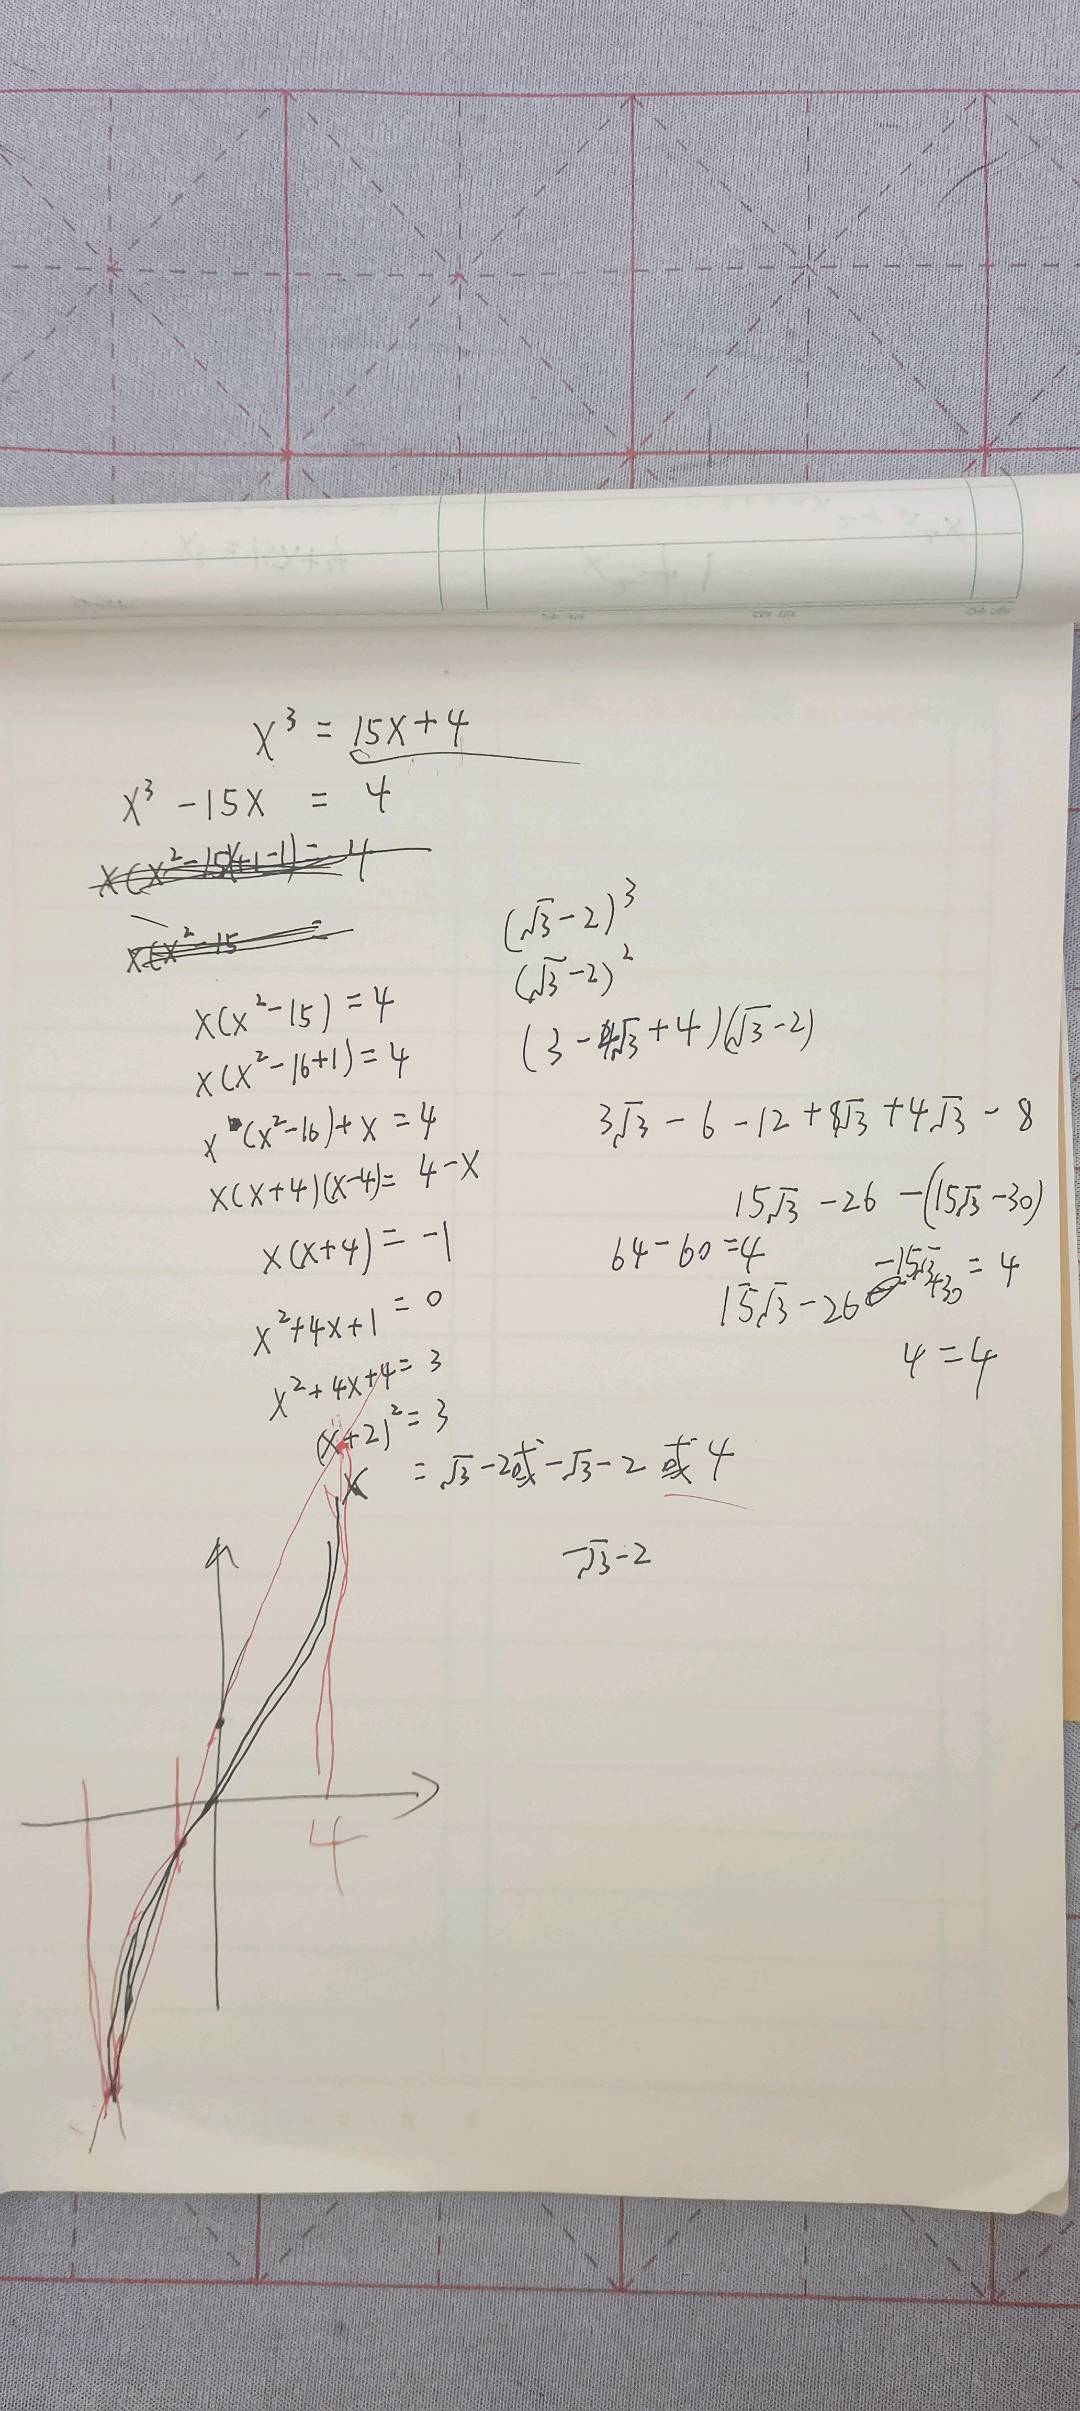 x³ = 15x+4
x³ -15x = 4
x(x²-15)=4
x(x²-16+1)=4
x(x²-16)+x=4
x(x+4)(x-4)= 4-x
x(x+4)=-1
x²+4x+1=0
x²+4x+4=3
(x+2)²=3
x =√3-2或-√3-2或4
-√3-2
(√3-2)³
(√3-2)²
(3-4√3+4)(√3-2)
3√3-6-12+8√3+4√3-8
15√3-26-(15√3-30)
64-60=4
15√3-26-15√3+30=4
4=4
4